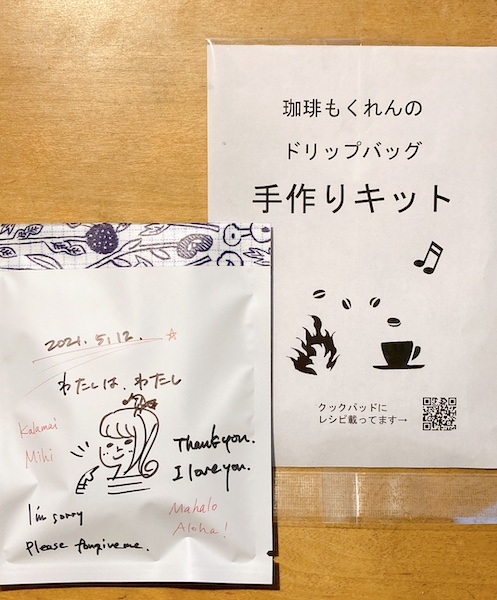 珈琲もくれんの
ドリップバッグ
手作りキット
クックパッドに
レシピ載ってます→
2021. 5. 12.
わたしは、わたし
Kalamai
Mihi
Thank you.
I love you.
I'm sorry
Please forgive me.
Mahalo
Aloha!